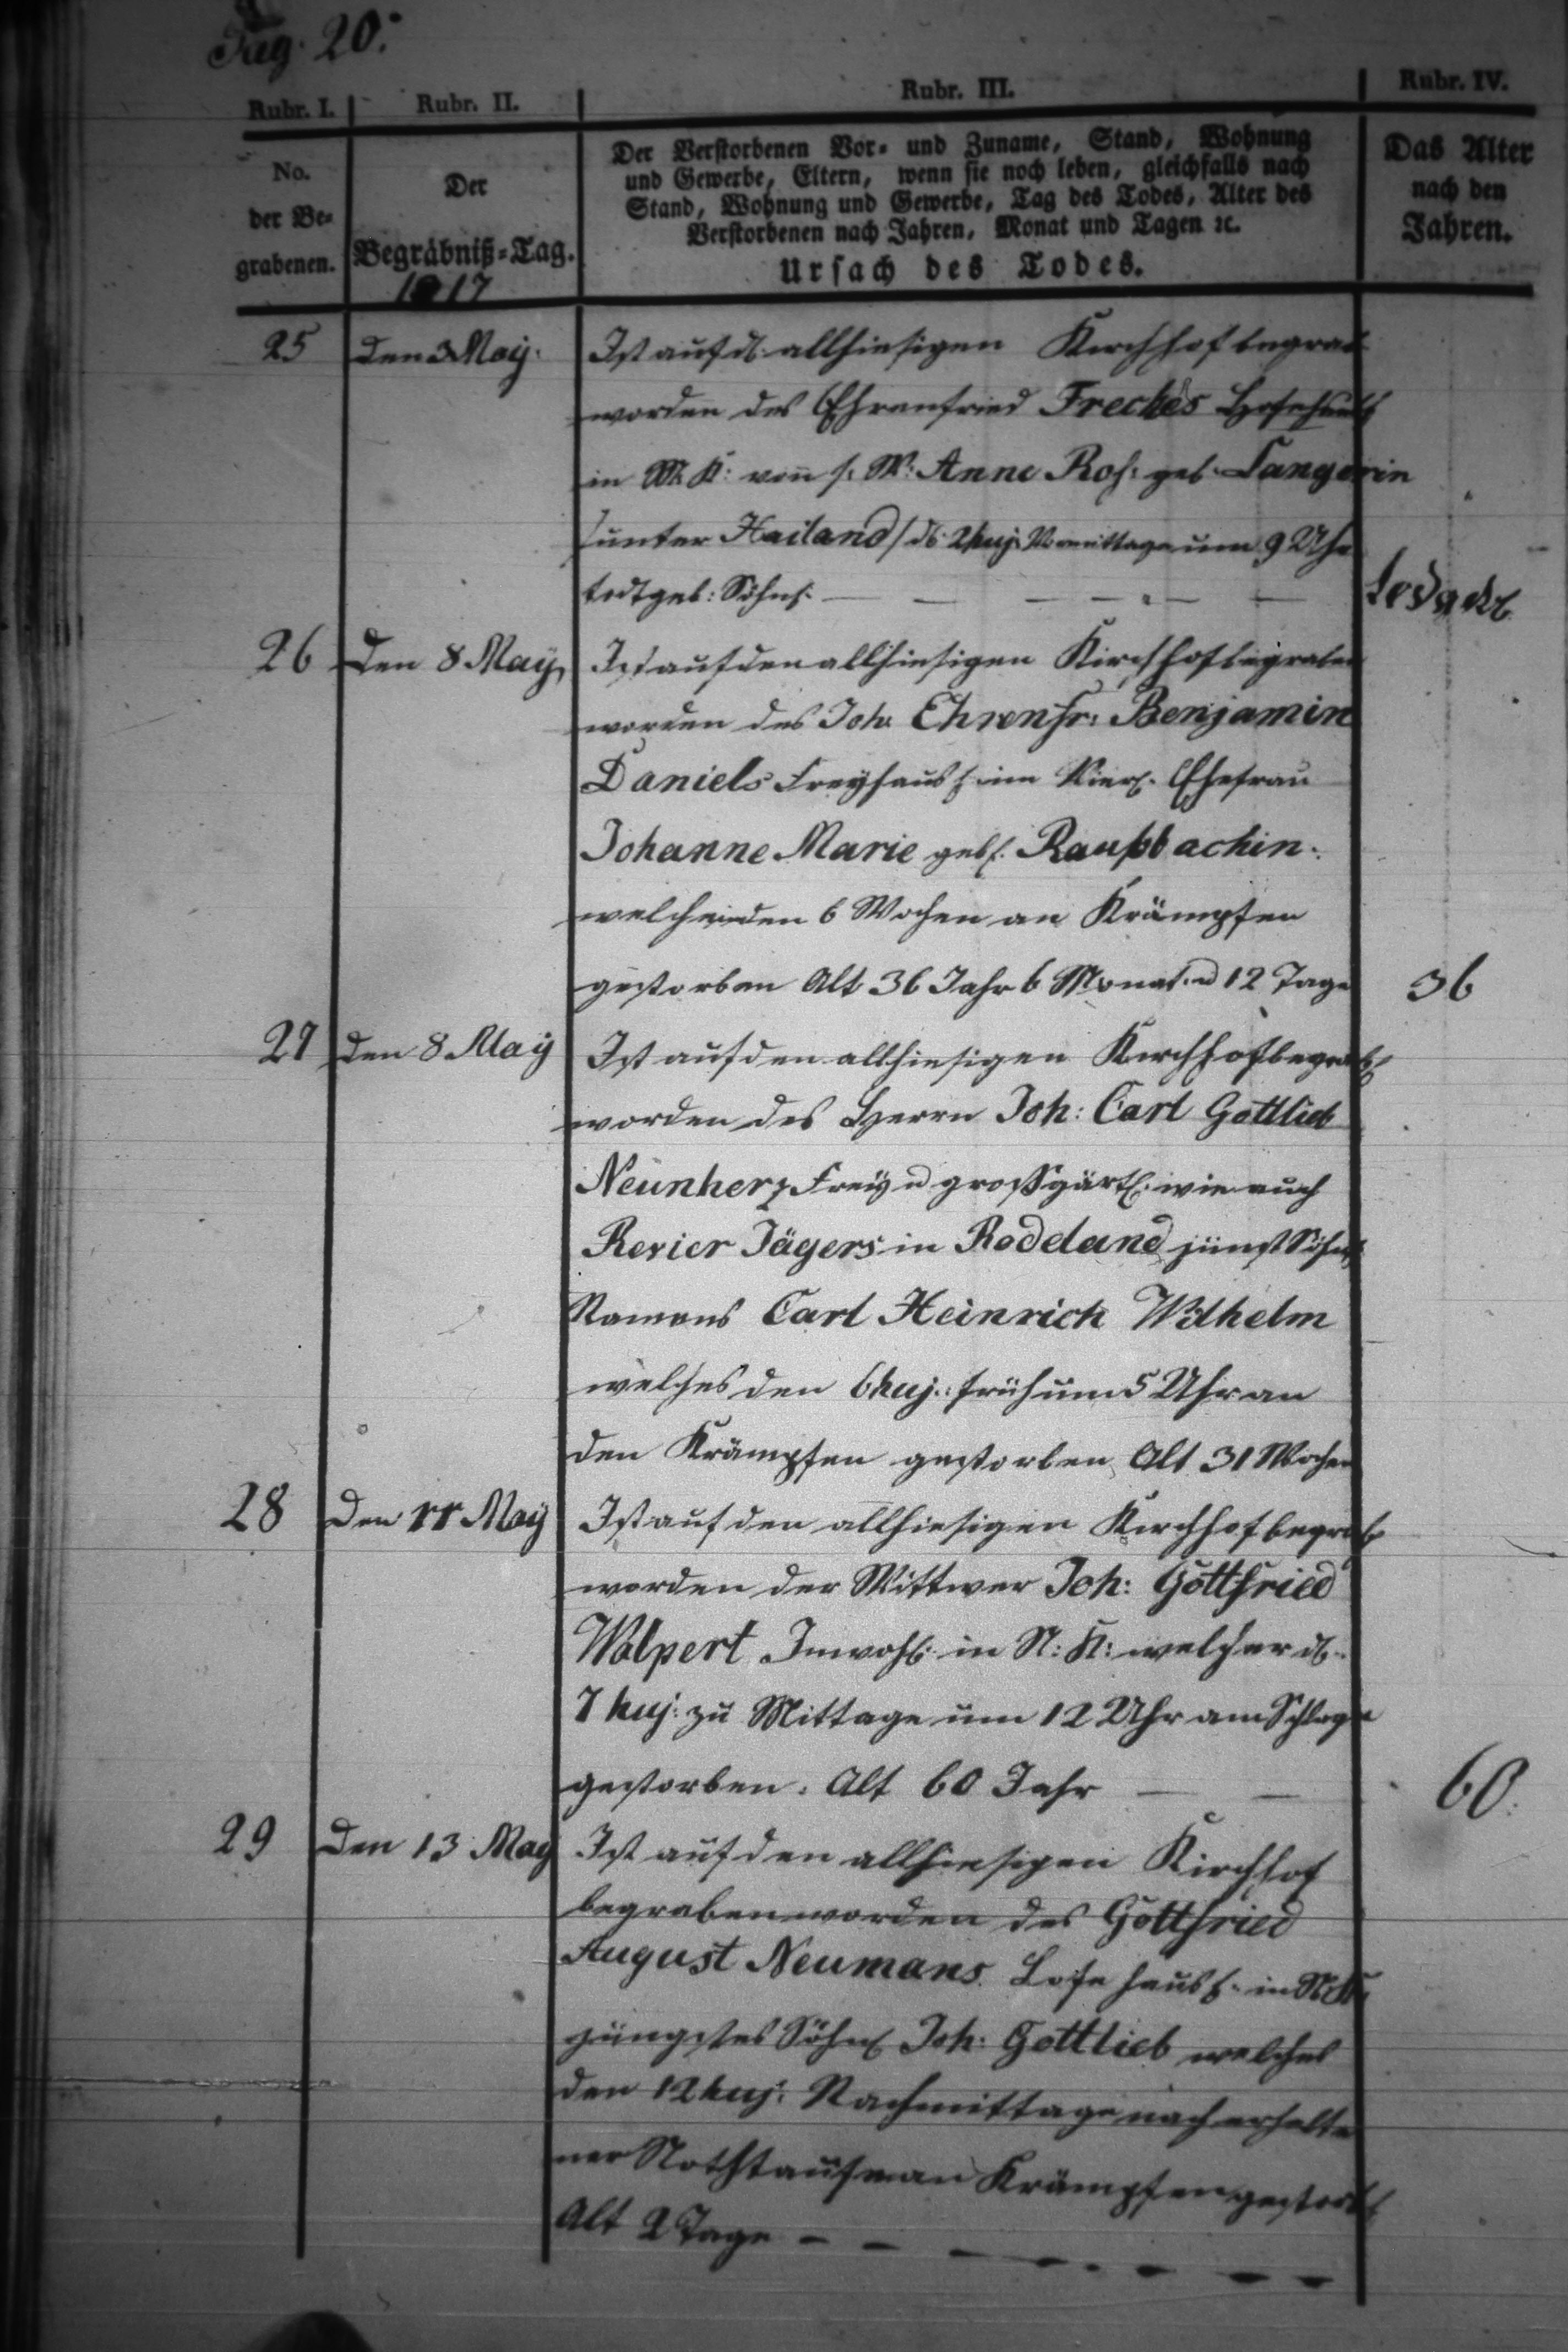 Pag. 20.
Rubr. I. Rubr. II. Rubr. III. Rubr. IV.
No. der Be= grabenen.
Der Begräbniß=Tag.
1817
Der Verstorbenen Vor= und Zuname, Stand, Wohnung
und Gewerbe, Eltern, wenn sie noch leben, gleichfalls nach
Stand, Wohnung und Gewerbe, Tag des Todes, Alter des
Verstorbenen nach Jahren, Monat und Tagen ꝛc.
Ursach des Todes.
Das Alter
nach den
Jahren.
25 den 3 May. Ist auf d. allhiesigen Kirchhof begrab
worden des Ehrenfried Freches
in von s. W: Anne Ros: geb. Langerin
unter Hailand / d. 2 huj. Vormittage um 9 Uhr
todtgeb: Söhnl.
26 den 8 May Ist auf den allhiesigen Kirchhof begraben
worden des Joh. Ehrenfr: Benjamin
Daniels Freyhäusl. im Ehefrau
Johanne Marie geb. Raußbachin.
welche in den 6 Wochen an Krämpfen
gestorben Alt 36 Jahr 6 Monat u 12 Tage 36
27 den 8 May Ist auf den allhiesigen Kirchhof begrab
worden des Herrn Joh: Carl Gottlieb
Neunherz Frey u großgärtl. wie auch
Revier Jägers in Rodeland jüngst Söhnl
Namens Carl Heinrich Wilhelm
welches den 6 huj. früh um 5 Uhr an
den Krämpfen gestorben Alt 31 Wochen
28 den 11 May Ist auf den allhiesigen Kirchhof begrab
worden der Wittwer Joh: Gottfried
Walpert Inwohl. in N: K: welcher d.
7 huj: zu Mittage um 12 Uhr am Schlage
gestorben. Alt 60 Jahr 60.
29 den 13 May Ist auf den allhiesigen Kirchhof
begraben worden des Gottfried
August Neumans in
jüngstes Söhnl Joh: Gottlieb welches
den 12 huj: Nachmittage nach erhalte
ner Nothtaufe an Krämpfen gestorb
Alt 2 Tage